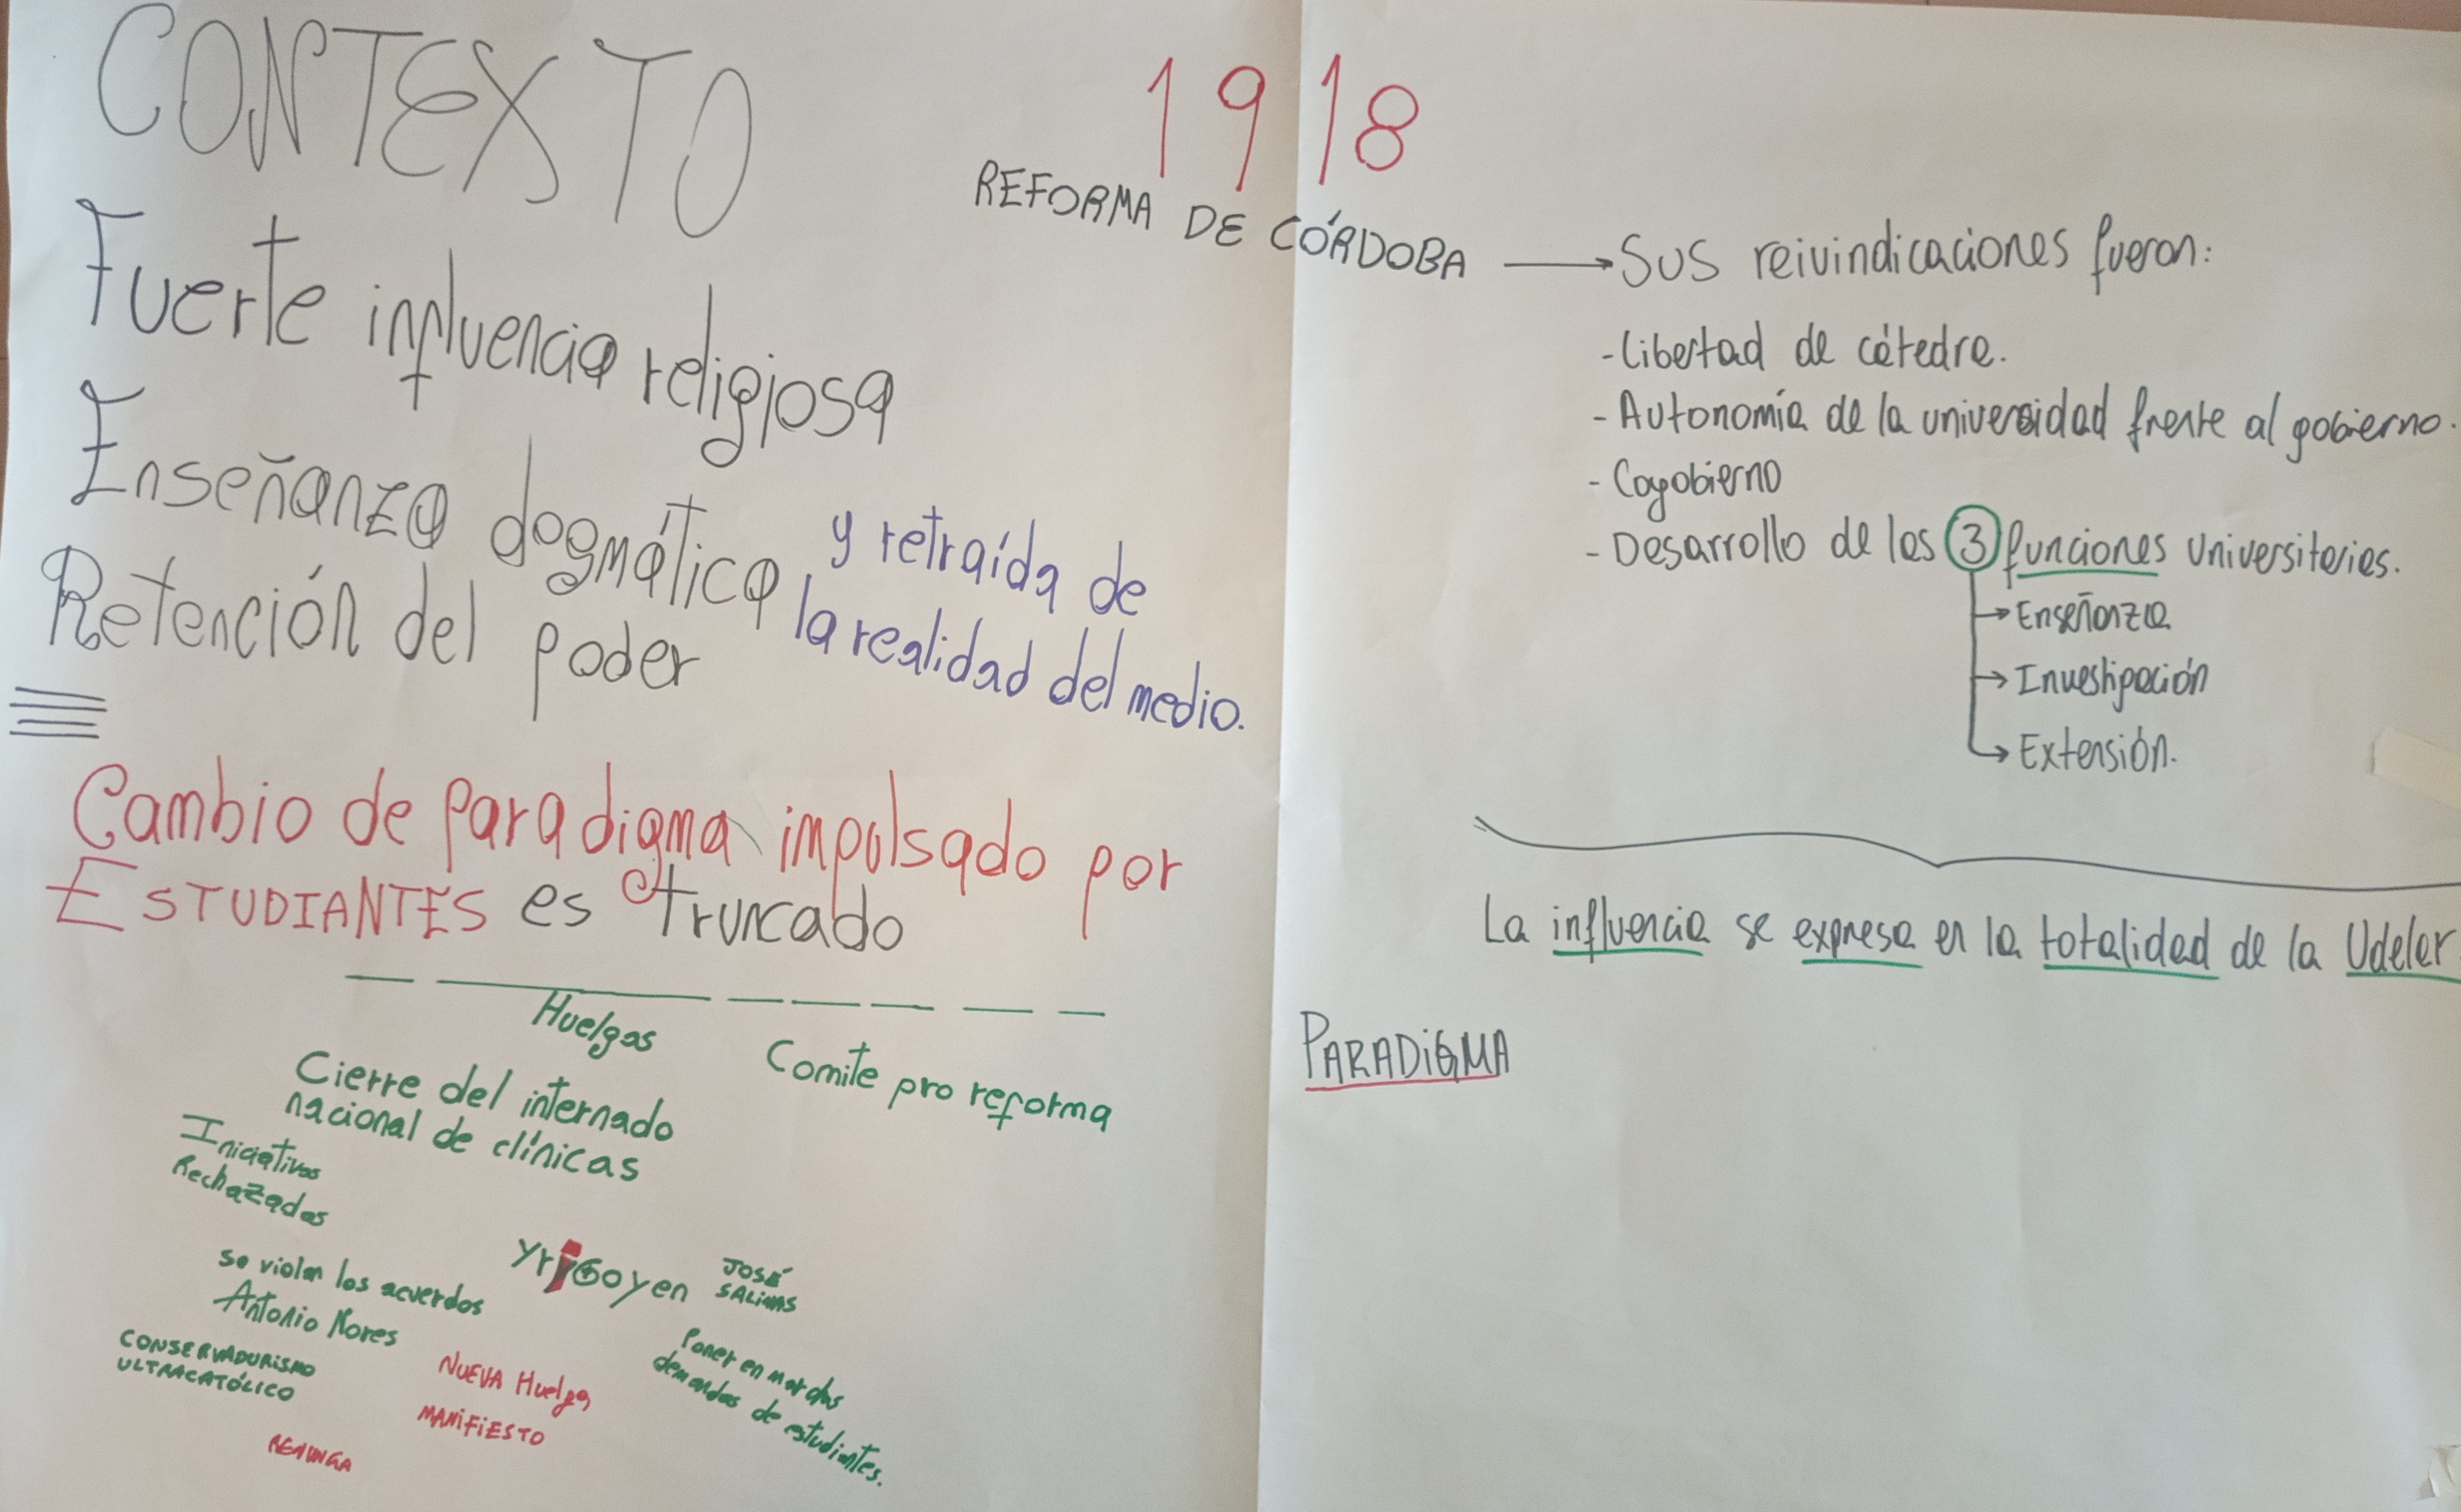 CONTEXTO
Fuerte influencia religiosa
Enseñanza dogmática y retraída de
la realidad del medio.
Retención del poder
Cambio de paradigma impulsado por
ESTUDIANTES es truncado
Huelgas
Comite pro reforma
Cierre del internado
nacional de clínicas
Iniciativas
Rechazadas
Yrigoyen
JOSÉ
SALINAS
se violan los acuerdos
Antonio Nores
CONSERVADURISMO
ULTRACATÓLICO
NUEVA Huelga
MANiFiESTO
Poner en marcha
demandas de estudiantes.
1918
REFORMA DE CÓRDOBA → Sus reivindicaciones fueron:
- Libertad de cátedra.
- Autonomía de la universidad frente al gobierno.
- Cogobierno
- Desarrollo de las 3 funciones universitarias.
→ Enseñanza
→ Investigación
→ Extensión.
La influencia se expresa en la totalidad de la Udelar
PARADiGMA